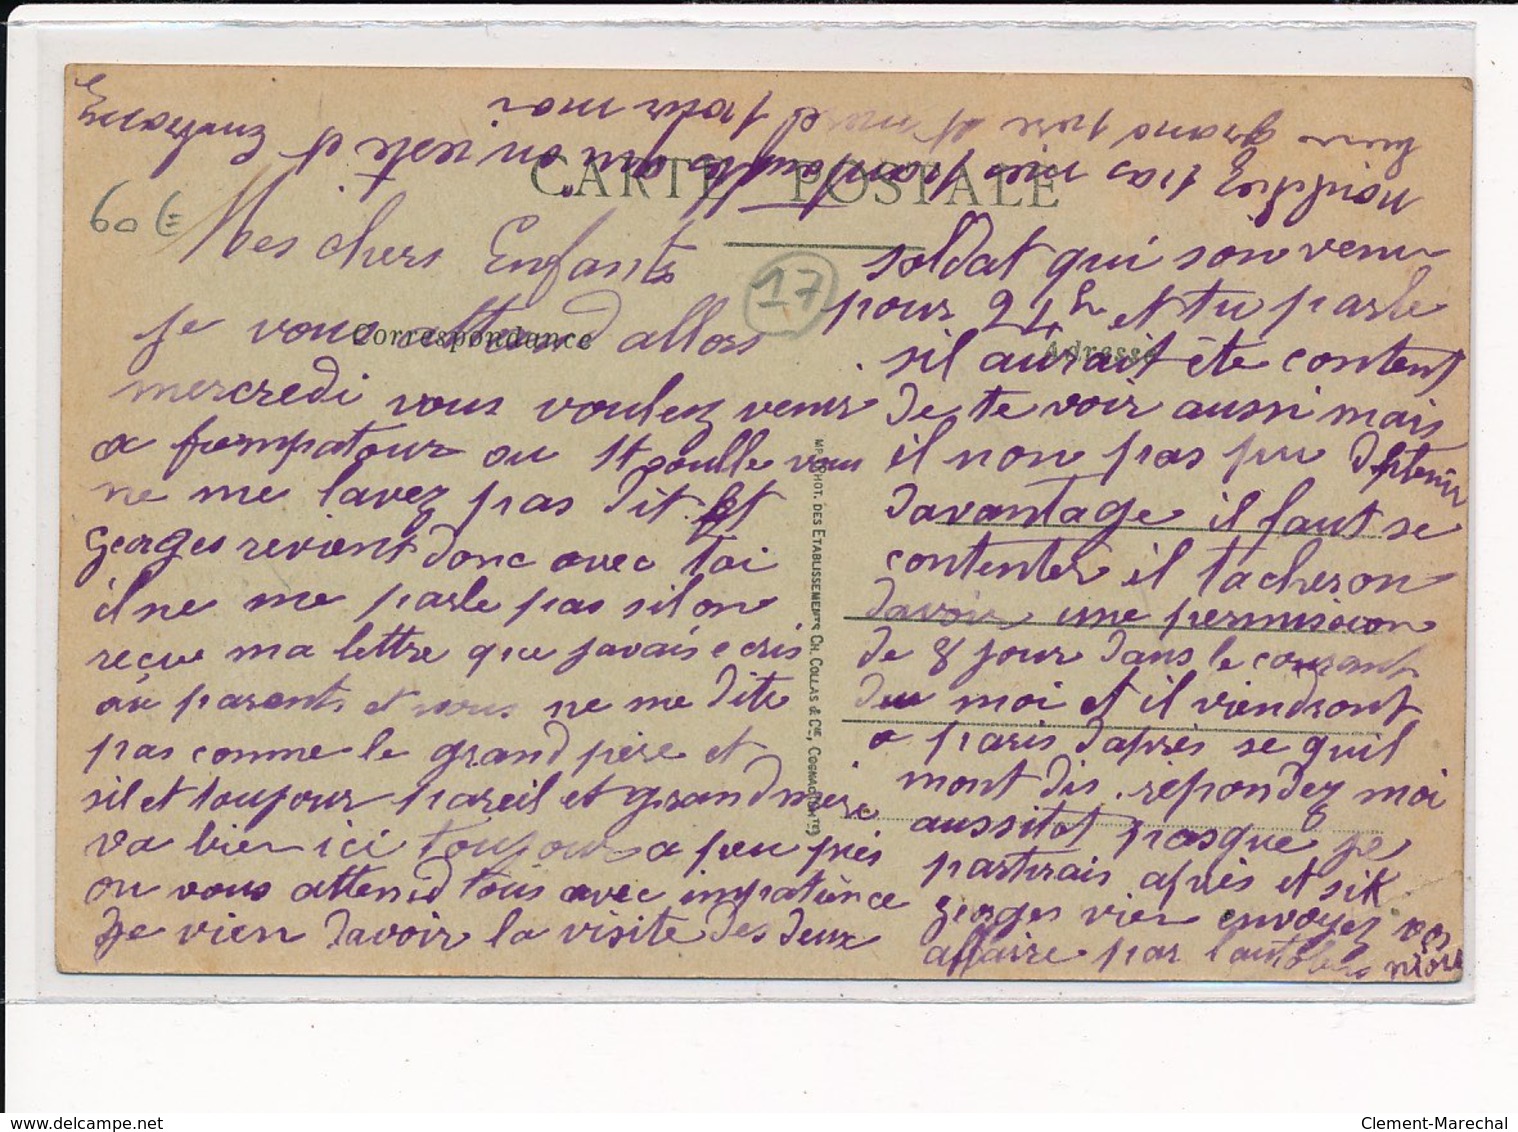 Mes chers Enfants
je vous attend allors
mercredi vous voulez venir
a ou St vous
ne me lavez pas dit Et
georges revient donc avec toi
il ne me parle pas sil on
reçue ma lettre que javais ecris
au parents et vous ne me dite
pas comme le grand père et
sil et toujour pareil et grand mere
va bien ici toujours a peu près
on vous attend tous avec impatience
Je vien davoir la visite des deux
soldat qui son venu
pour 24h et tu parle
sil aurait été content
de te voir aussi mais
il non pas pu
davantage il faut se
contenter il tacheron
davoir une permission
de 8 jour dans le courant
du moi et il viendront
a paris daprès se quil
mont dis. répondez moi
aussitot pasque je
partirais après et si
georges vien envoyez vos
affaire par l'autobus
noubliez pas mes on veste et Embrassez
bien grand père et mere pour moi
CARTE POSTALE
Correspondance
Adresse
PHOT. DES ETABLISSEMENTS CH. COLLAS & CIE, COGNAC
60 €
17
delcampe.net
Clement-Marechal